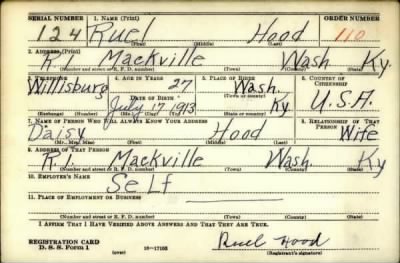 SERIAL NUMBER 1. NAME (Print) ORDER NUMBER
124 Ruel Hood 110
(First) (Middle) (Last)
2. ADDRESS (Print)
R. 1. Mackville Wash Ky.
(Number and street or R. F. D. number) (Town) (County) (State)
3. TELEPHONE 4. AGE IN YEARS 5. PLACE OF BIRTH 6. COUNTRY OF CITIZENSHIP
Willisburg 27 Wash.
(Town or county)
DATE OF BIRTH
July 17 1913 Ky U.S.A.
(Exchange) (Number) (Mo.) (Day) (Yr.) (State or country)
7. NAME OF PERSON WHO WILL ALWAYS KNOW YOUR ADDRESS 8. RELATIONSHIP OF THAT PERSON
Daisy Hood Wife
(Mr., Mrs., Miss) (First) (Middle) (Last)
9. ADDRESS OF THAT PERSON
R1. Mackville Wash. Ky
(Number and street or R. F. D. number) (Town) (County) (State)
10. EMPLOYER'S NAME
Self
11. PLACE OF EMPLOYMENT OR BUSINESS
(Number and street or R. F. D. number) (Town) (County) (State)
I AFFIRM THAT I HAVE VERIFIED ABOVE ANSWERS AND THAT THEY ARE TRUE.
REGISTRATION CARD
D. S. S. Form 1 (over) 16—17105 Ruel Hood
(Registrant's signature)